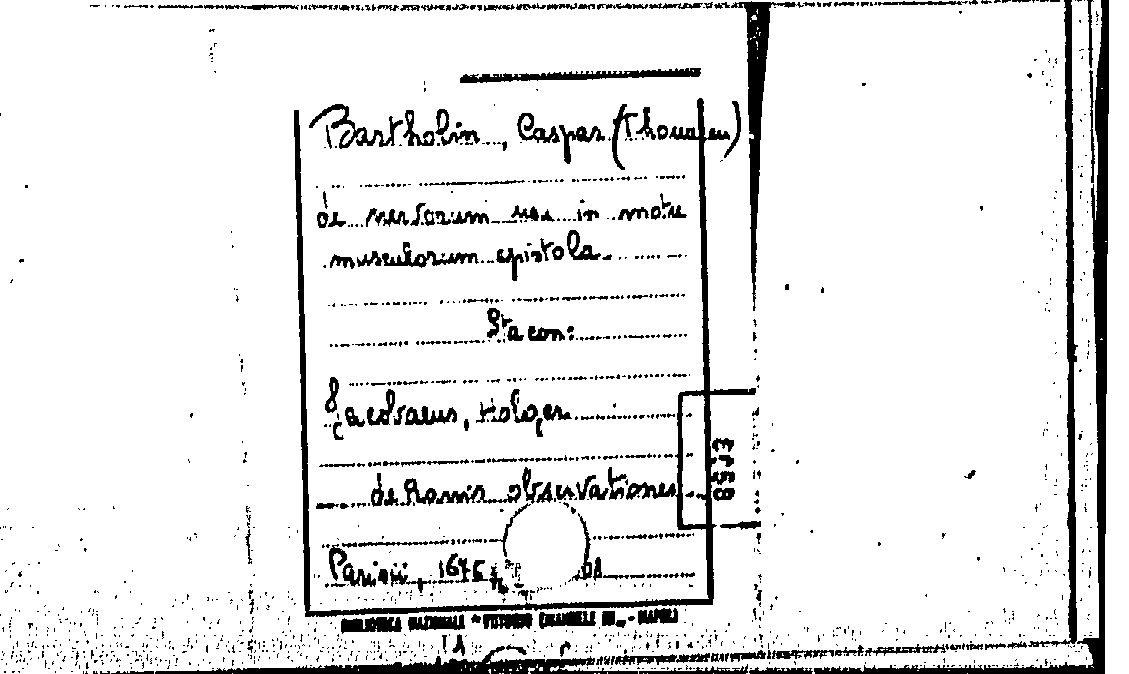 Bartholin, Caspar (Thomae
de nervorum usu in motu
musculorum epistola
Sta con:
Jacobaeus, Holger
de Ranis observationes
Parisii, 1676
BIBLIOTECA NAZIONALE "VITTORIO EMANUELE III" - NAPOLI